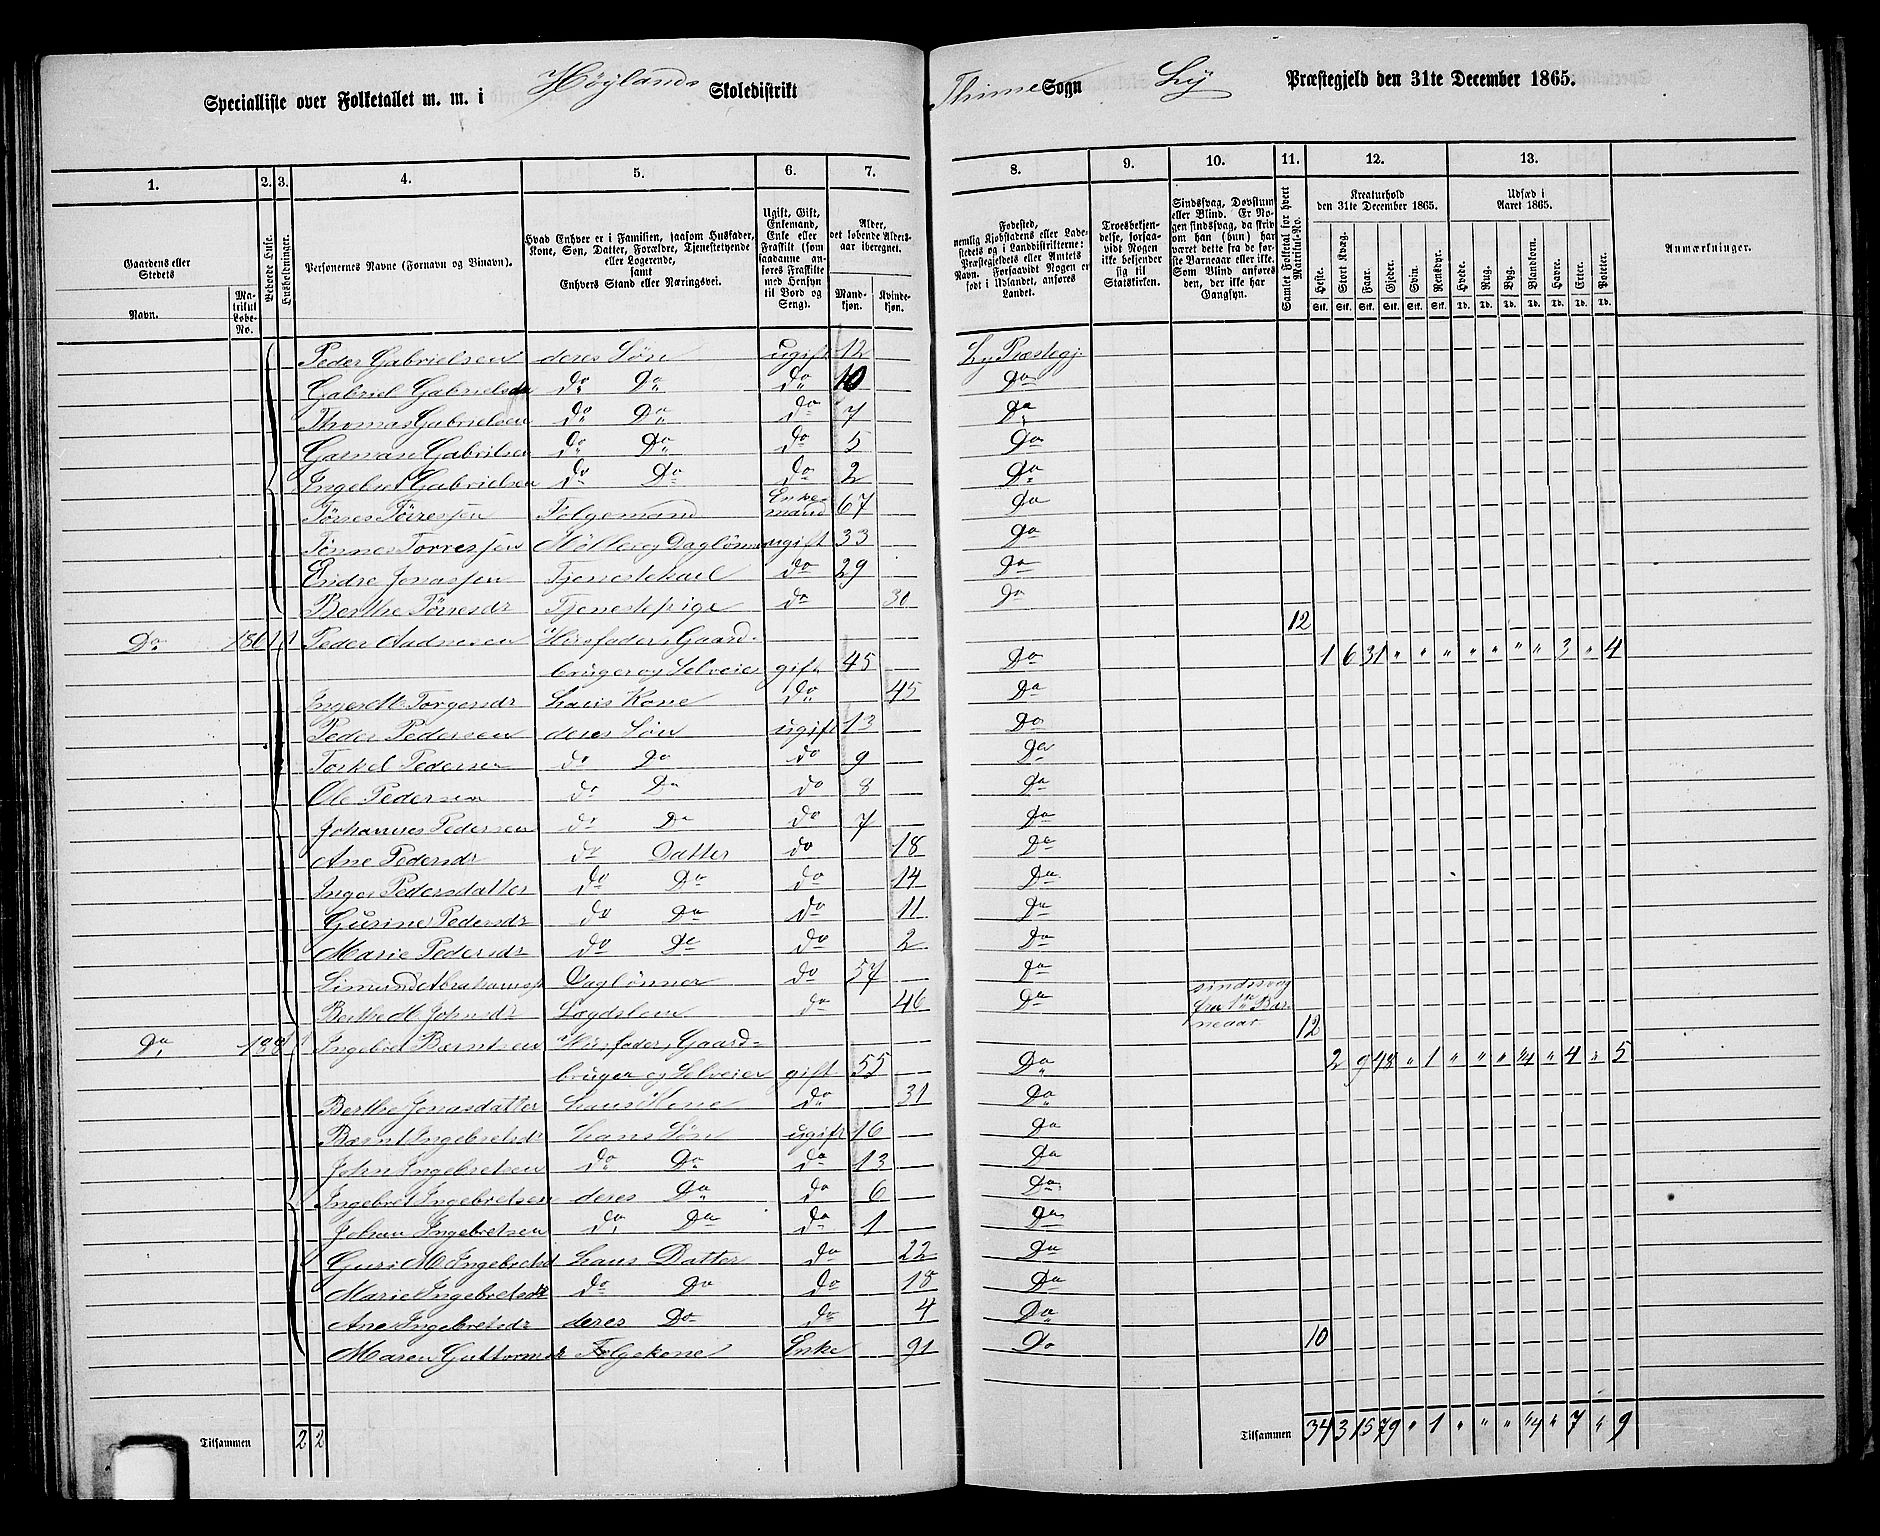 Specialliste over Folketallet m. m. i Höylands Skoledistrikt
Thime Sogn Ly Præstegjeld den 31te December 1865.
1. 2. 3. 4. 5. 6. 7.
8. 9. 10. 11. 12. 13.
Gaardens eller Stedets
Navn.
Matrikul Løbe-No.
Beboede Huse.
Husholdninger.
Personernes Navne (Fornavn og Binavn).
Hvad Enhver er i Familien, saasom Husfader, Kone, Søn, Datter, Forældre, Tjenestetyende eller Logerende,
samt
Enhvers Stand eller Næringsvei.
Ugift, Gift, Enkemand, Enke eller Fraskilt (som saadanne anføres Fraskilte med Hensyn til Bord og Seng).
Alder, det løbende Aldersaar iberegnet.
Mandkjøn.
Kvindekjøn.
Fødested,
nemlig Kjøbstadens eller Ladestedets og i Landdistrikterne: Præstegjeldets eller Amtets Navn. Forsaavidt Nogen er født i Udlandet, anføres Landet.
Troesbekjendelse, forsaavidt Nogen ikke bekjender sig til Statskirken.
Sindssvag, Døvstum eller Blind. Er Nogen sindssvag, da skriv om han (hun) har været dette fra de første Barneaar eller ikke. Som Blind anføres den, der ikke har Gangsyn.
Samlet Folketal for hvert Matrikul-No.
Kreaturhold
den 31te December 1865.
Heste. Stort Kvæg. Faar. Gjeder. Svin. Rensdyr.
Stk. Stk. Stk. Stk. Stk. Stk.
Udsæd i
Aaret 1865.
Hvede. Rug. Byg. Blandkorn. Havre. Erter. Poteter.
Td. Td. Td. Td. Td. Td. Td.
Anmærkninger.
Peder Gabrielsen deres Sön ugift 12 Ly Præstegj.
Gabriel Gabrielsen do Do do 10 Do
Thomas Gabrielsen do Do do 7 Do
Gabrilsen do Do do 5 Do
Ingebret Gabrielsen do Do do 2 Do
Tönnes Törresjen Folgemand Enkemand 67 Do
Tönnes Torresjen Möller og Daglönner ugift 33 Do
Endre Jonasjen Tjenestekarl do 29 Do
Berthe Törresdr Tjenestepige do 30 Do 12
Do 186 1 1 Peder Andresen Husfader, Gaard-
bruger og Selveier gift 45 Do 1 6 31 " " " " " " " 3 " 4
Inger M. Torgersdr hans Kone do 45 Do
Peder Pedersen deres Sön ugift 13 Do
Torkel Pedersen do Do do 9 Do
Ole Pedersen do Do do 8 Do
Johannes Pedersen do Do do 7 Do
Ane Pedersdr do Datter do 18 Do
Inger Pedersdatter do Do do 14 Do
Gurine Pedersdr do Do do 11 Do
Marie Pedersdr do Do do 2 Do
Simund Abrahamsjn Daglönner do 57 Do
Berthe M. Johnsdr Lægdslem do 46 Do sindssvag
fra 1ste Bar-
neaar 12
Do 188 1 1 Ingebret Bærntsen Husfader, Gaard-
bruger og Selveier gift 55 Do 2 9 48 " 1 " " " 1/4 " 4 " 5
Berthe Jonasdatter hans Kone do 31 Do
Bærnt Ingebretsdr hans Sön ugift 16 Do
John Ingebretsen do Do do 13 Do
Ingebret Ingebretsen deres Do do 6 Do
Johan Ingebretsen do Do do 1 Do
Guri M Ingebretsd hans Datter do 22 Do
Marie Ingebretsdr do Do do 18 Do
Ane Ingebretsdr deres Do do 4 Do
Maren Guttormsdr Folgekone Enke 91 Do 10
Tilsammen 2 2
Tilsammen 34 3 15 79 " 1 " " " 1/4 " 7 " 9